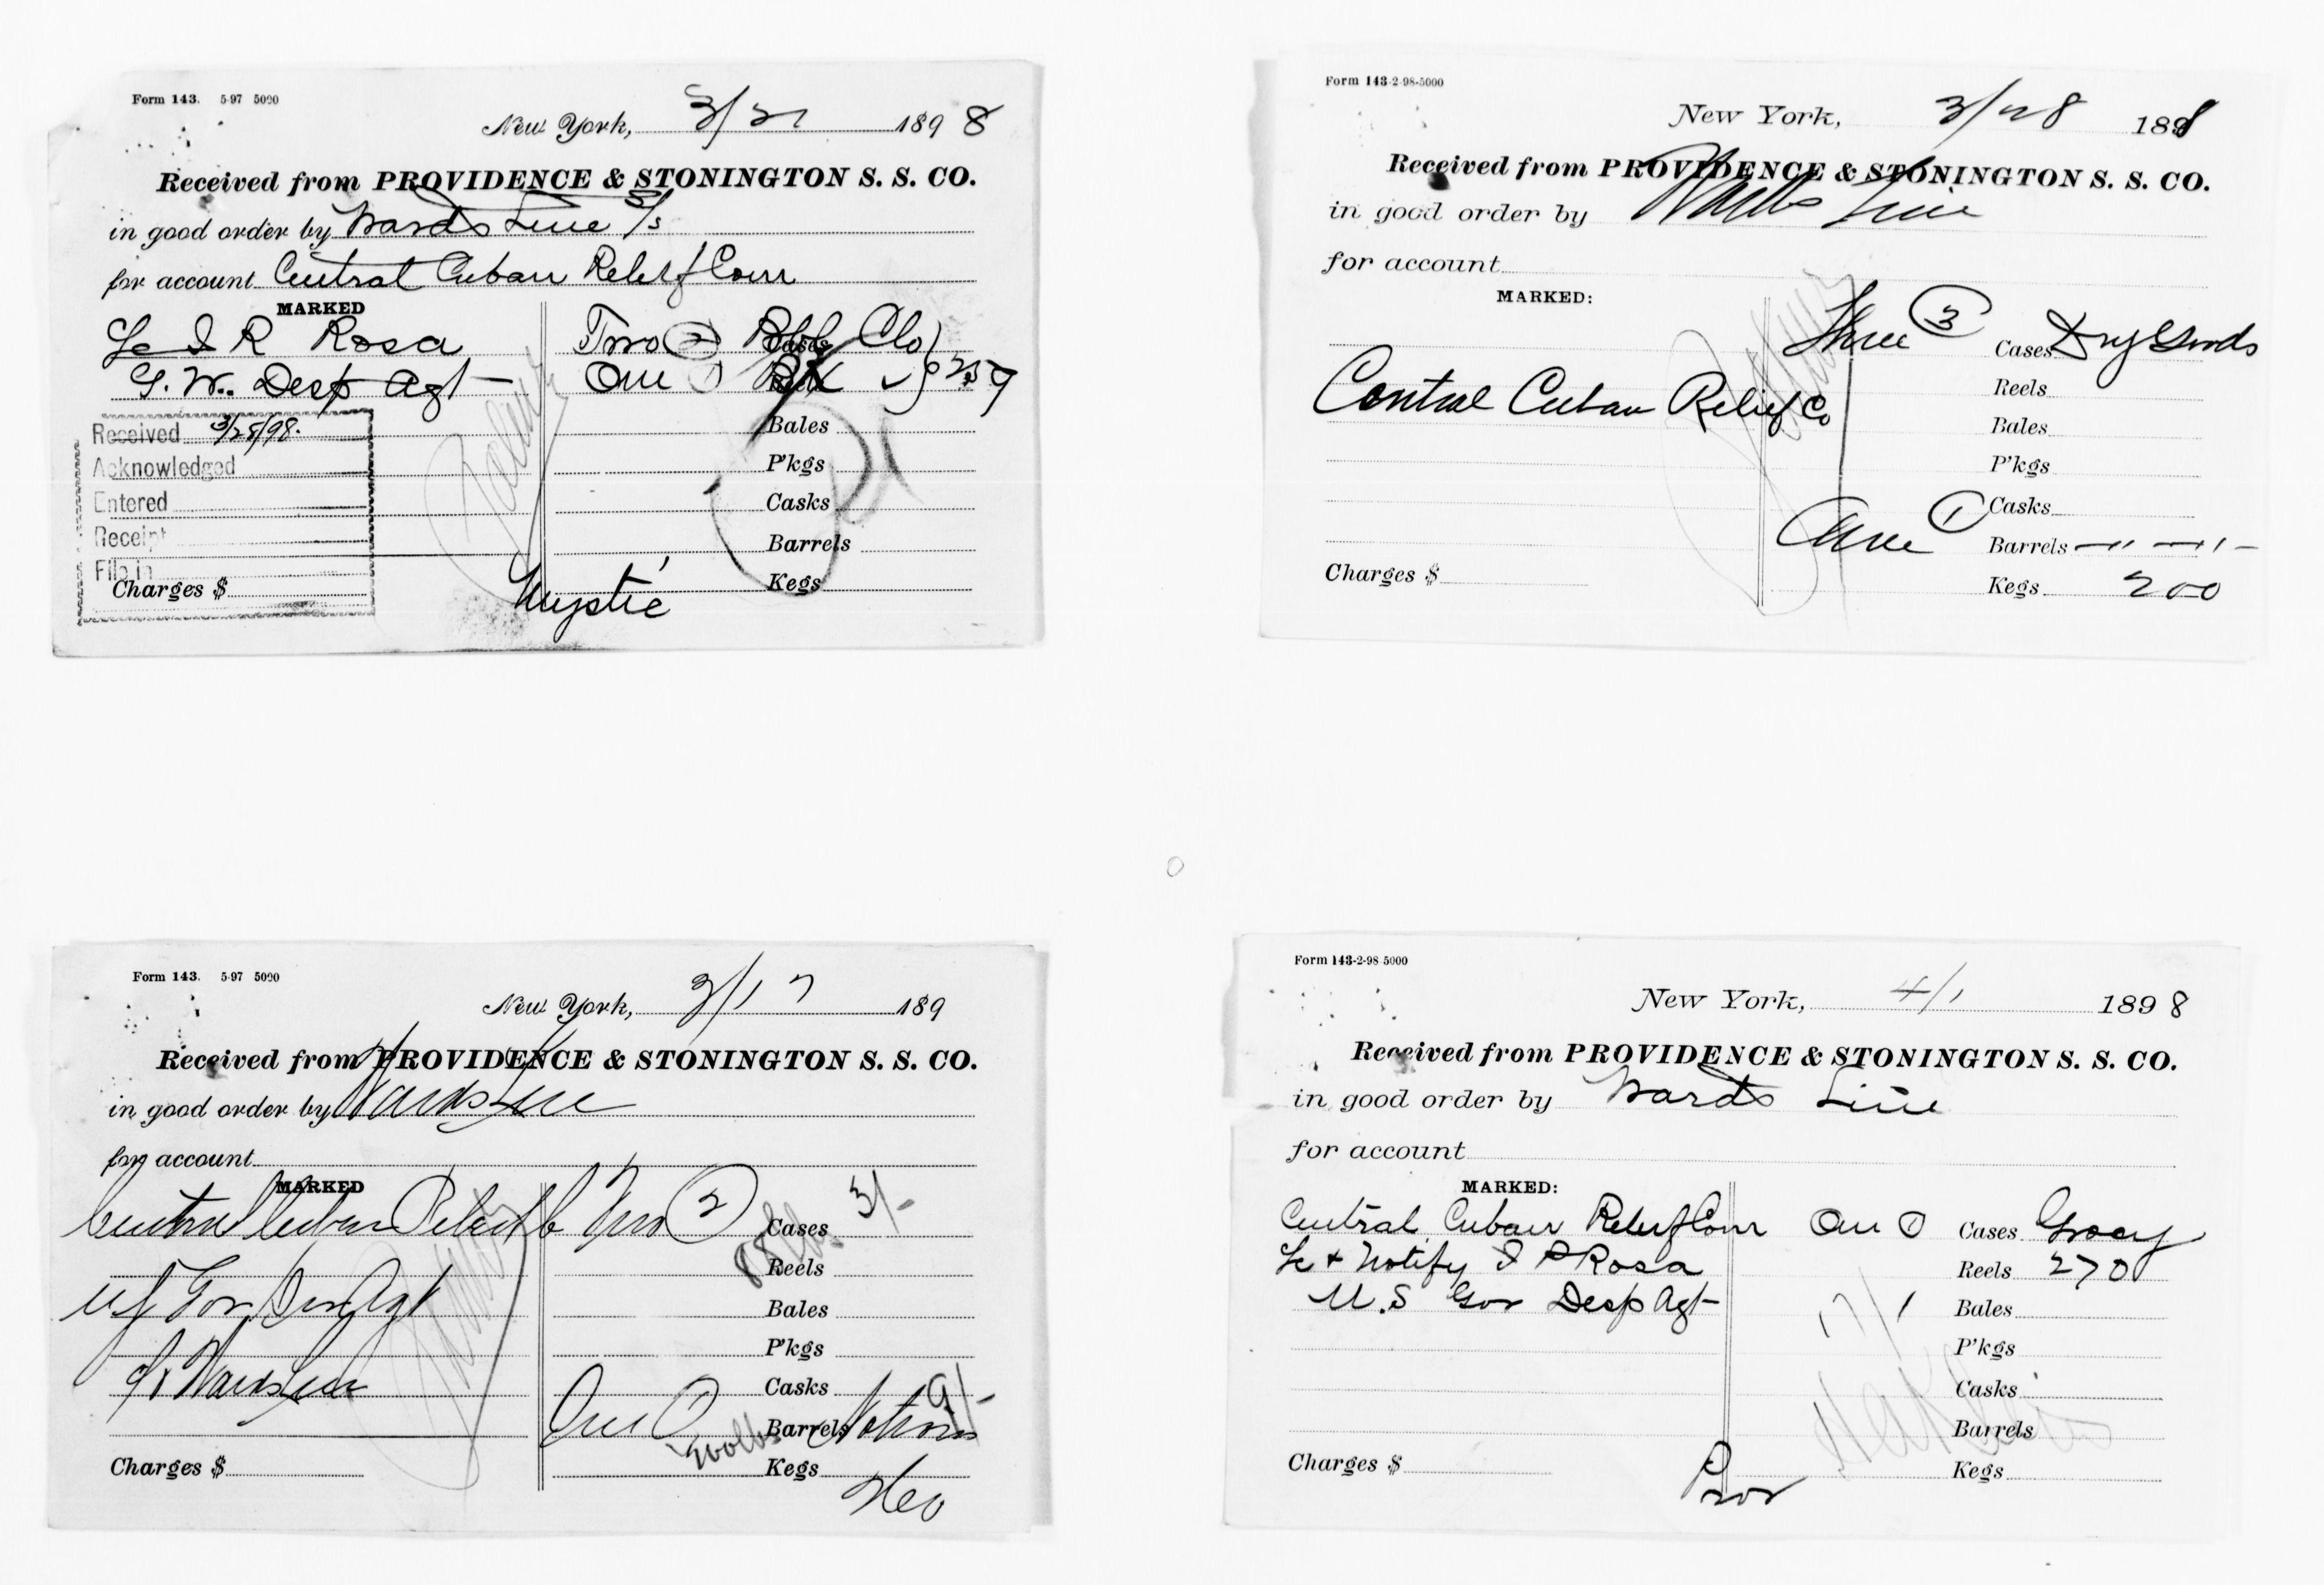 Form 143. 5-97 5000
New York, 3/21 1898
Received from PROVIDENCE & STONINGTON S. S. CO.
in good order by Wards Line S/s
for account Central Cuban Relief Com
MARKED
I R Rosa Two (2) Cases Clo
Desp Agt One 1 Reels 259
Received 3/28/98.
Bales
Acknowledged
P'kgs
Entered
Casks
Receipt
Barrels
File in
Charges $
Mystic
Kegs
Form 143-2-98-5000
New York, 3/28 1898
Received from PROVIDENCE & STONINGTON S. S. CO.
in good order by Wards Line
for account
MARKED:
Three (3) Cases Dry Goods
Reels
Central Cuban Relief Co
Bales
P'kgs
One (1) Casks
Barrels " "
Charges $
Kegs 200
Form 143. 5-97 5000
New York, 3/17 189
Received from PROVIDENCE & STONINGTON S. S. CO.
in good order by Wards Line
for account
MARKED
Central Cuban Relief Two (2) Cases 3/-
Reels
Bales
P'kgs
Wards Line
Casks 9/-
One (1) Barrels Notions
Charges $
Kegs
Form 143-2-98-5000
New York, 4/1 1898
Received from PROVIDENCE & STONINGTON S. S. CO.
in good order by Wards Line
for account
MARKED:
Central Cuban Relief Com One (1) Cases Grocy
& Notify I R Rosa Reels 270
U.S Gov Desp Agt Bales
P'kgs
Casks
Barrels
Charges $
Prov
Kegs